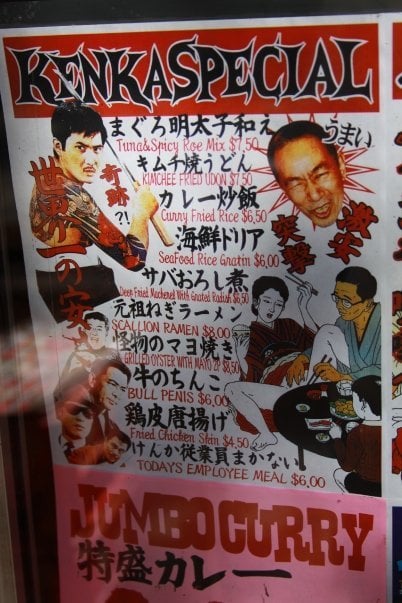 KENKASPECIAL
まぐろ明太子和え
Tuna&Spicy Roe Mix $7,50
うまい
キムチ焼うどん
KIMCHEE FRIED UDON $7,50
奇跡?!
カレー炒飯
Curry Fried Rice $6,50
激安
突撃
世界一の安
海鮮ドリア
SeaFood Rice Gratin $6,00
サバおろし煮
Deep Fried Mackerel With Grated Radish $6,50
元祖ねぎラーメン
SCALLION RAMEN $8,00
怪物のマヨ焼き
GRILLED OYSTER WITH MAYO 2P $8,50
牛のちんこ
BULL PENIS $6,00
鶏皮唐揚げ
Fried Chicken Skin $4,50
けんか従業員まかない!
TODAYS EMPLOYEE MEAL $6,00
JUMBO CURRY
特盛カレー